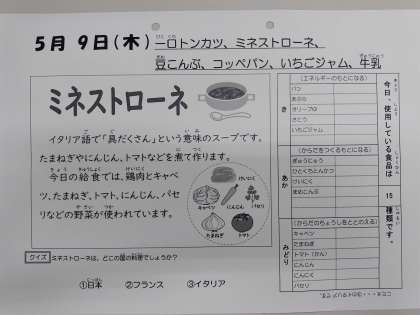 5月 9日(木) 一口トンカツ、ミネストローネ、
豆こんぶ、コッペパン、いちごジャム、牛乳
ミネストローネ
イタリア語で「具だくさん」という意味のスープです。
たまねぎやにんじん、トマトなどを煮て作ります。
今日の給食では、鶏肉とキャベ
ツ、たまねぎ、トマト、にんじん、パセ
リなどの野菜が使われています。
けいにく
キャベツ
にんじん
パセリ
たまねぎ
トマト
クイズ ミネストローネは、どこの国の料理でしょうか?
①日本 ②フランス ③イタリア
今日、使用している食品は 15 種類です。
き
(エネルギーのもとになる)
パン
あぶら
オリーブ
さとう
いちごジャム
あか
(からだをつくるもとになる)
ぎゅうにゅう
ぶたにく
けいにく
まめこんぶ
みどり
(からだのちょうしをととのえる)
キャベツ
たまねぎ
トマト(かん)
にんじん
にんにく
パセリ